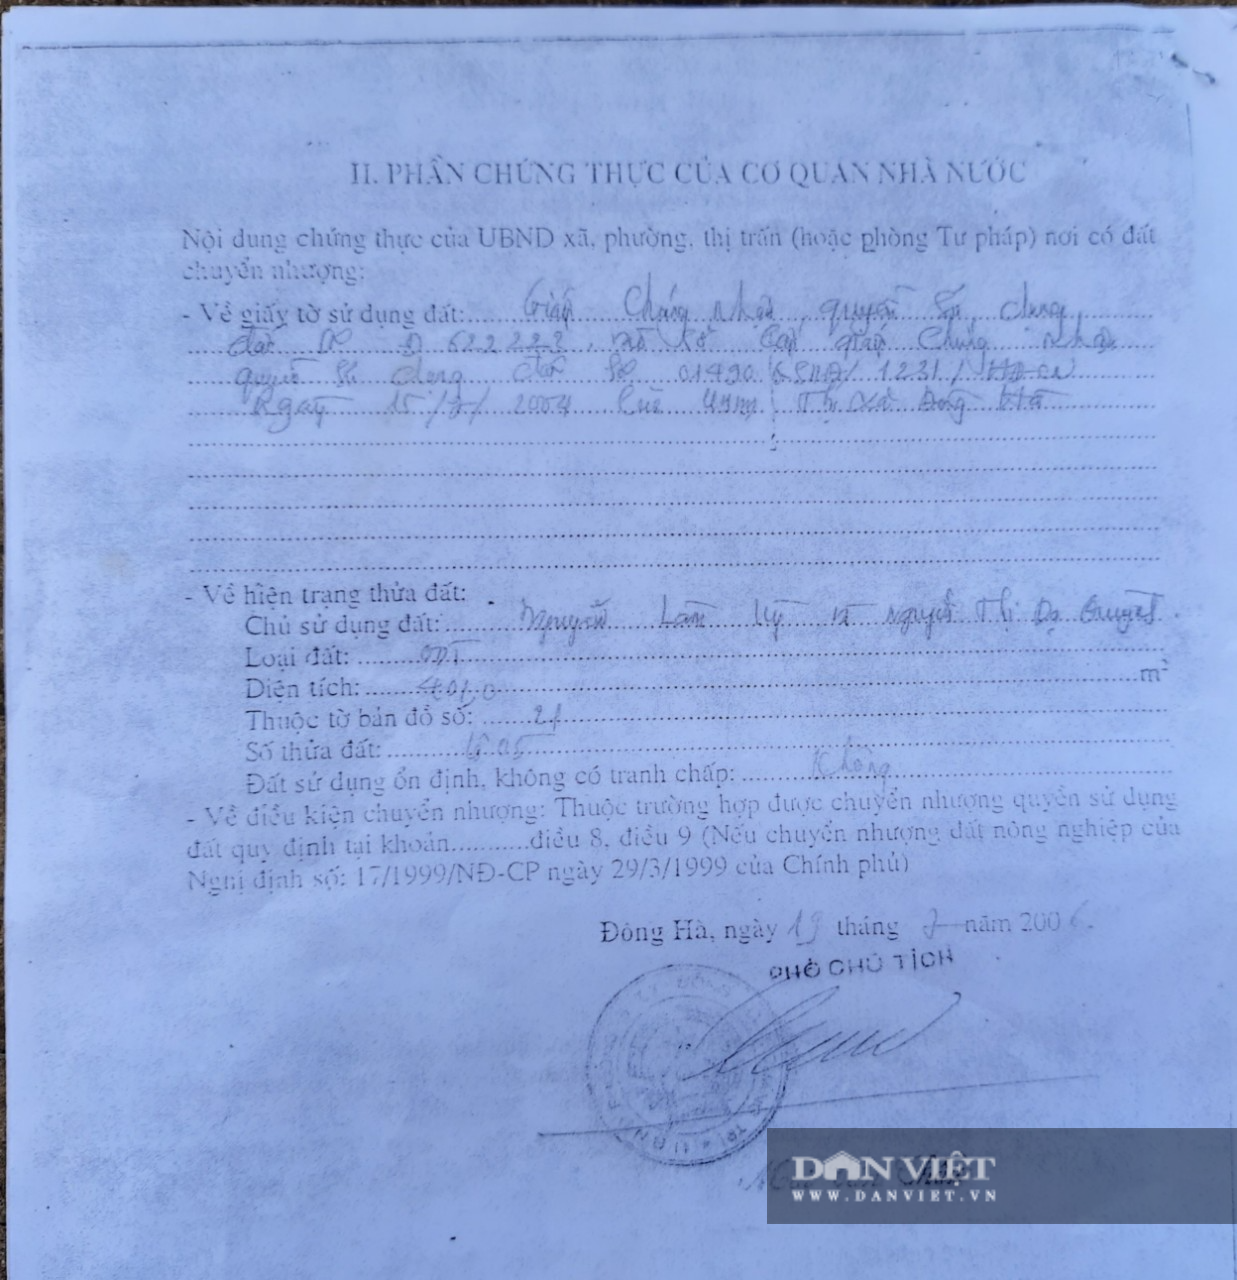 II. PHẦN CHỨNG THỰC CỦA CƠ QUAN NHÀ NƯỚC
Nội dung chứng thực của UBND xã, phường, thị trấn (hoặc phòng Tư pháp) nơi có đất
chuyển nhượng:
- Về giấy tờ sử dụng đất: Giấy Chứng nhận quyền sử dụng
đất số 622222, vào sổ cấp giấy chứng nhận
quyền sử dụng đất số 01490 QSDĐ/ 1231/
Ngày 15/7/2004 của UBND Thị xã Đông Hà
- Về hiện trạng thửa đất:
Chủ sử dụng đất: Nguyễn Lâm Kỳ và Nguyễn Thị Dạ
Loại đất: ODT
Diện tích: 401,0 m²
Thuộc tờ bản đồ số: 21
Số thửa đất:
Đất sử dụng ổn định, không có tranh chấp: Không
- Về điều kiện chuyển nhượng: Thuộc trường hợp được chuyển nhượng quyền sử dụng
đất quy định tại khoản...........điều 8, điều 9 (Nếu chuyển nhượng đất nông nghiệp của
Nghị định số: 17/1999/NĐ-CP ngày 29/3/1999 của Chính phủ)
Đông Hà, ngày 19 tháng 7 năm 2006
PHÓ CHỦ TỊCH
DÂN VIỆT
WWW.DANVIET.VN